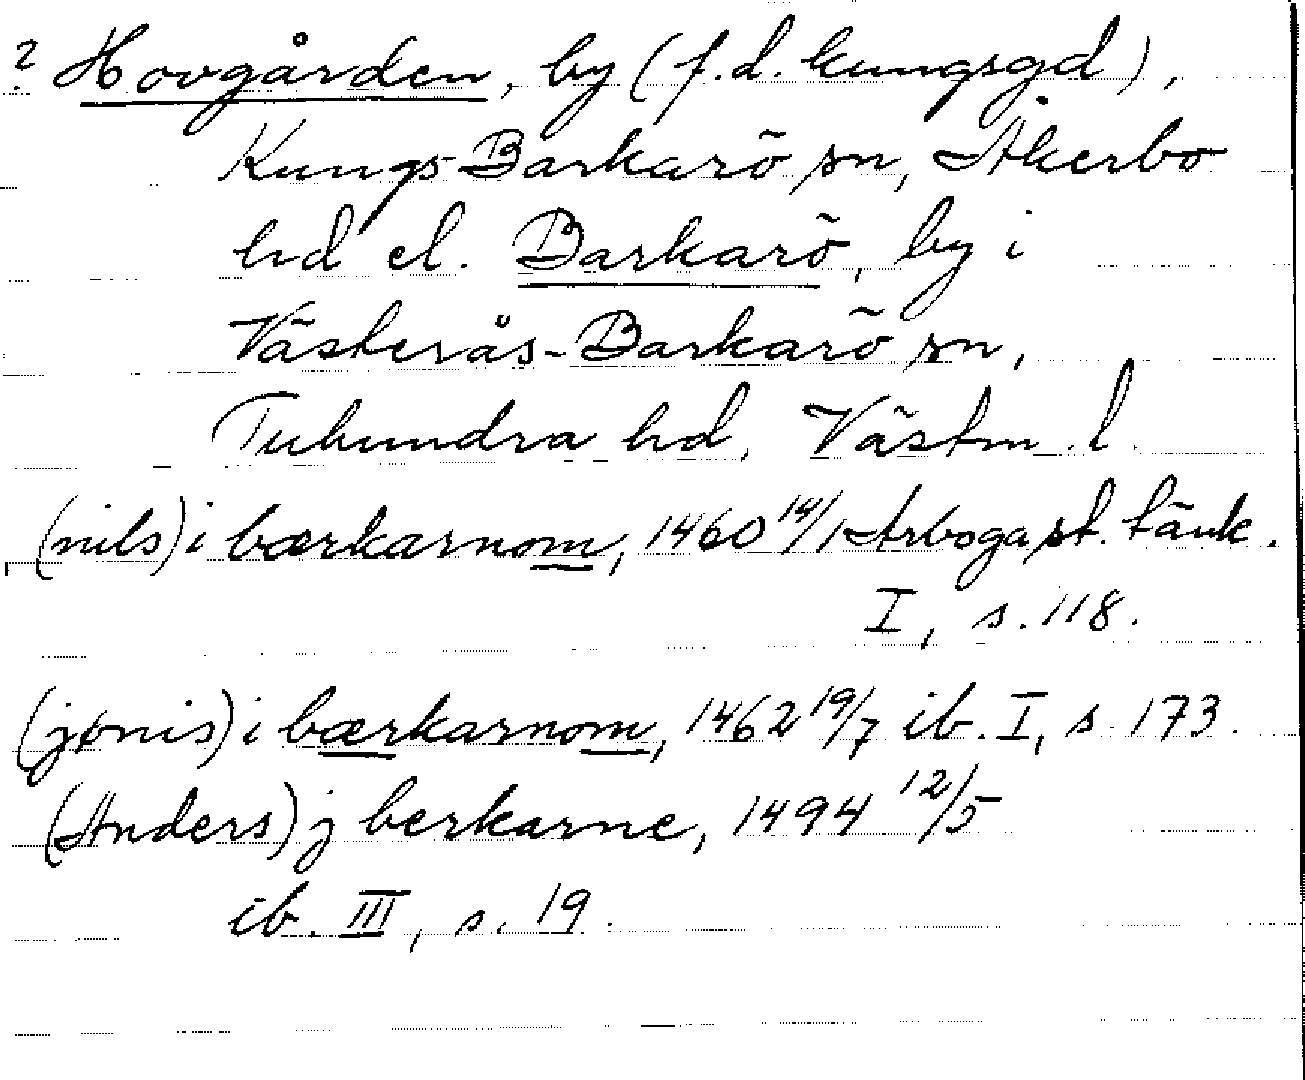 ? Hovgården, by (f.d. kungsgd),
Kungs-Barkarö sn, Åkerbo
hd el. Barkarö, by i
Västerås-Barkarö sn,
Tuhundra hd, Västm. l.
(nils) i bærkarnom, 1460 14/1 Arboga st. tänk.
I, s. 118.
(jønis) i bærkarnom, 1462 19/7 ib. I, s. 173.
(Anders) j berkarne, 1494 12/5
ib. III, s. 19.